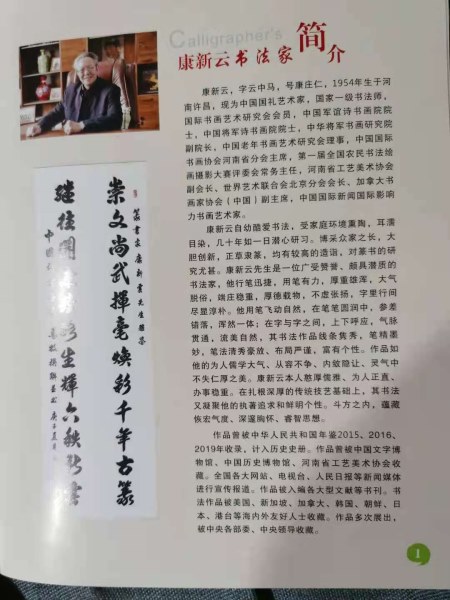 Calligrapher's
康新云书法家简介
康新云，字云中马，号康庄仁，1954年生于河
南许昌，现为中国国礼艺术家，国家一级书法师，
国际书画艺术研究会会员，中国军谊诗书画院院
士，中国将军诗书画院院士，中华将军书画研究院
副院长，中国老年书画艺术研究会理事，中国国际
书画协会河南省分会主席，第一届全国农民书法绘
画摄影大赛评委会常务主任，河南省工艺美术协会
副会长、世界艺术联合会北京分会会长、加拿大书
画家协会（中国）副主席，中国国际新闻国际影响
力书画艺术家。
康新云自幼酷爱书法，受家庭环境熏陶，耳濡
目染，几十年如一日潜心研习。博采众家之长，大
胆创新，正草隶篆，均有较高的造诣，对篆书的研
究尤甚。康新云先生是一位广受赞誉、颇具潜质的
书法家，他行笔迅捷，用笔有力，厚重雄浑，大气
脱俗，端庄稳重，厚德载物，不虚张扬，字里行间
尽显淳朴。他用笔飞动自然，在笔笔圆润中，参差
错落，浑然一体；在字与字之间，上下呼应，气脉
贯通，流美自然，其书法作品线条隽秀，笔精墨
妙，笔法清秀豪放、布局严谨，富有个性。作品如
他的为人儒学大气，从容不争、内敛隐让、灵气中
不失仁厚之美。康新云本人憨厚儒雅、为人正直、
办事稳重。在扎根深厚的传统技艺基础上，其书法
又凝聚他的执著追求和鲜明个性。斗方之内，蕴藏
恢宏气度、深邃胸怀、睿智思想。
作品曾被中华人民共和国年鉴2015、2016、
2019年收录，计入历史史册。作品曾被中国文字博
物馆、中国历史博物馆、河南省工艺美术协会收
藏。全国各大网站、电视台、人民日报等新闻媒体
进行宣传报道。作品被入编各大型文献等书刊。书
法作品被美国、新加坡、加拿大、韩国、朝鲜、日
本、港台等海内外友好人士收藏。作品多次展出，
被中央各部委、中央领导收藏。
崇文尚武挥毫焕彩千年古篆
1